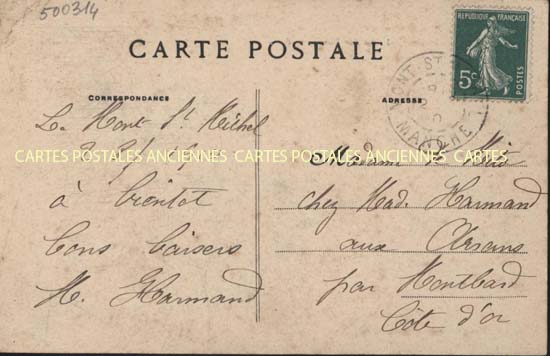 500314
CARTE POSTALE
CORRESPONDANCE
ADRESSE
REPUBLIQUE FRANÇAISE
5c
POSTES
MONT ST
MANCHE
Le Mont St Michel
à bientot
bons baisers
M. Harmand
Madame
chez Mad. Harmand
aux
par Montbard
Côte d'or
CARTES POSTALES ANCIENNES CARTES POSTALES ANCIENNES CARTES POSTALES ANCIENNES